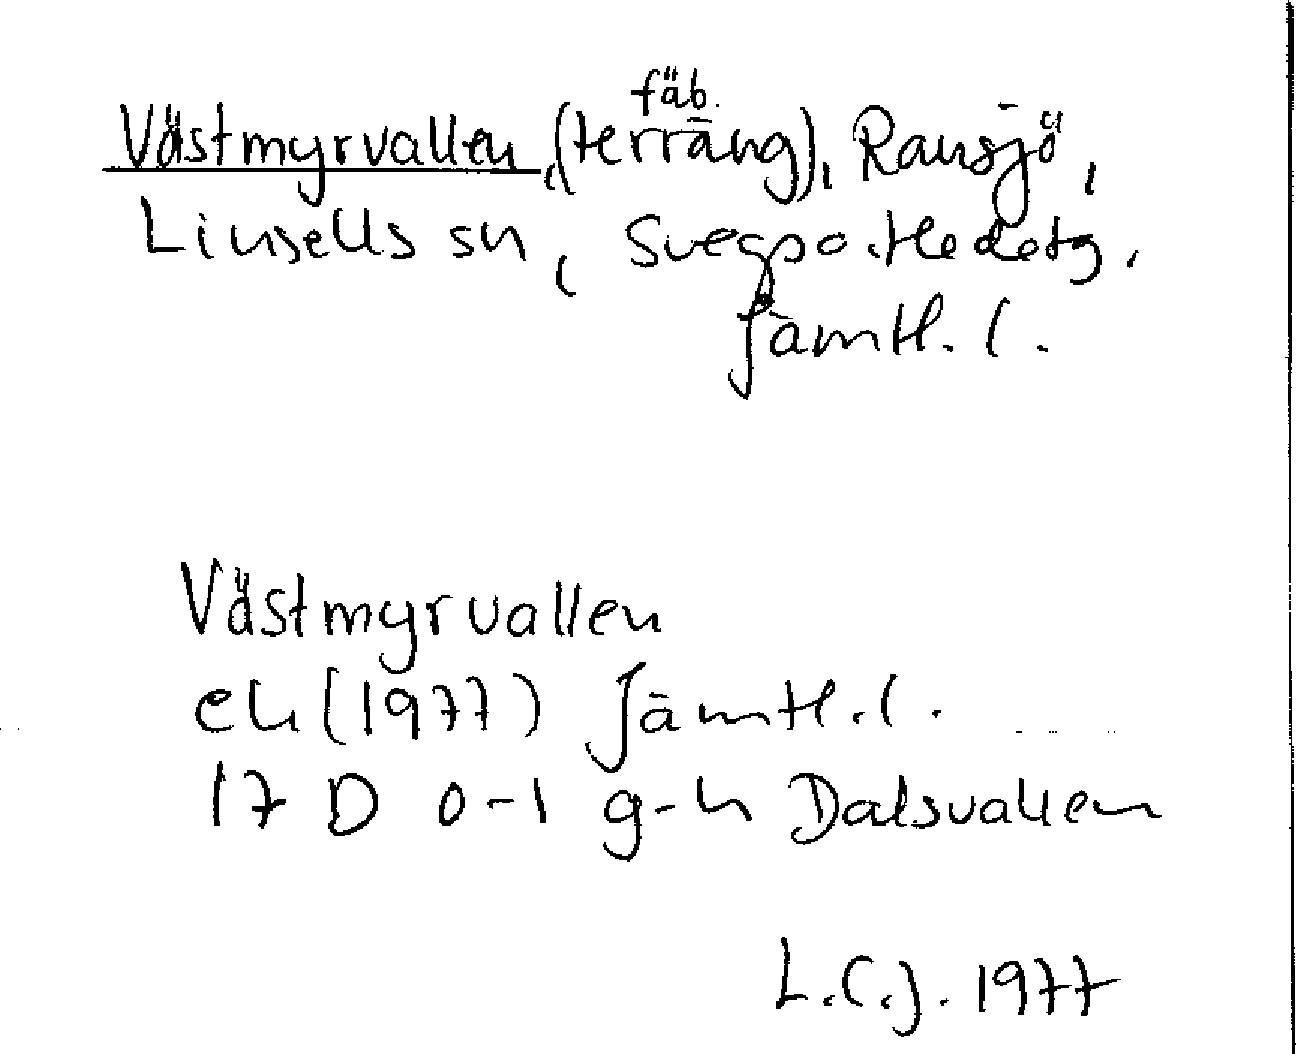 fäb.
Västmyrvallen, (terräng), Ransjö,
Linsells sn, Svegs o. Hedetg,
Jämtl. l.
Västmyrvallen
ek (1977) Jämtl. l.
17 D 0-1 g-h Dalsvallen
L.C.J. 1977